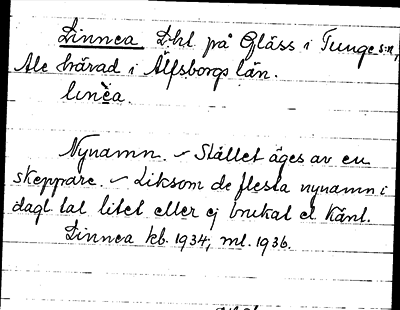 Linnea Dkl på Gläss i Tunge s:n,
Ale härad i Älfsborgs län.
linèa.
Nynamn. – Stället äges av en
skeppare. – Liksom de flesta nynamn i
dagl tal litet eller ej brukat el. känt.
Linnea kb. 1934, ml. 1936.